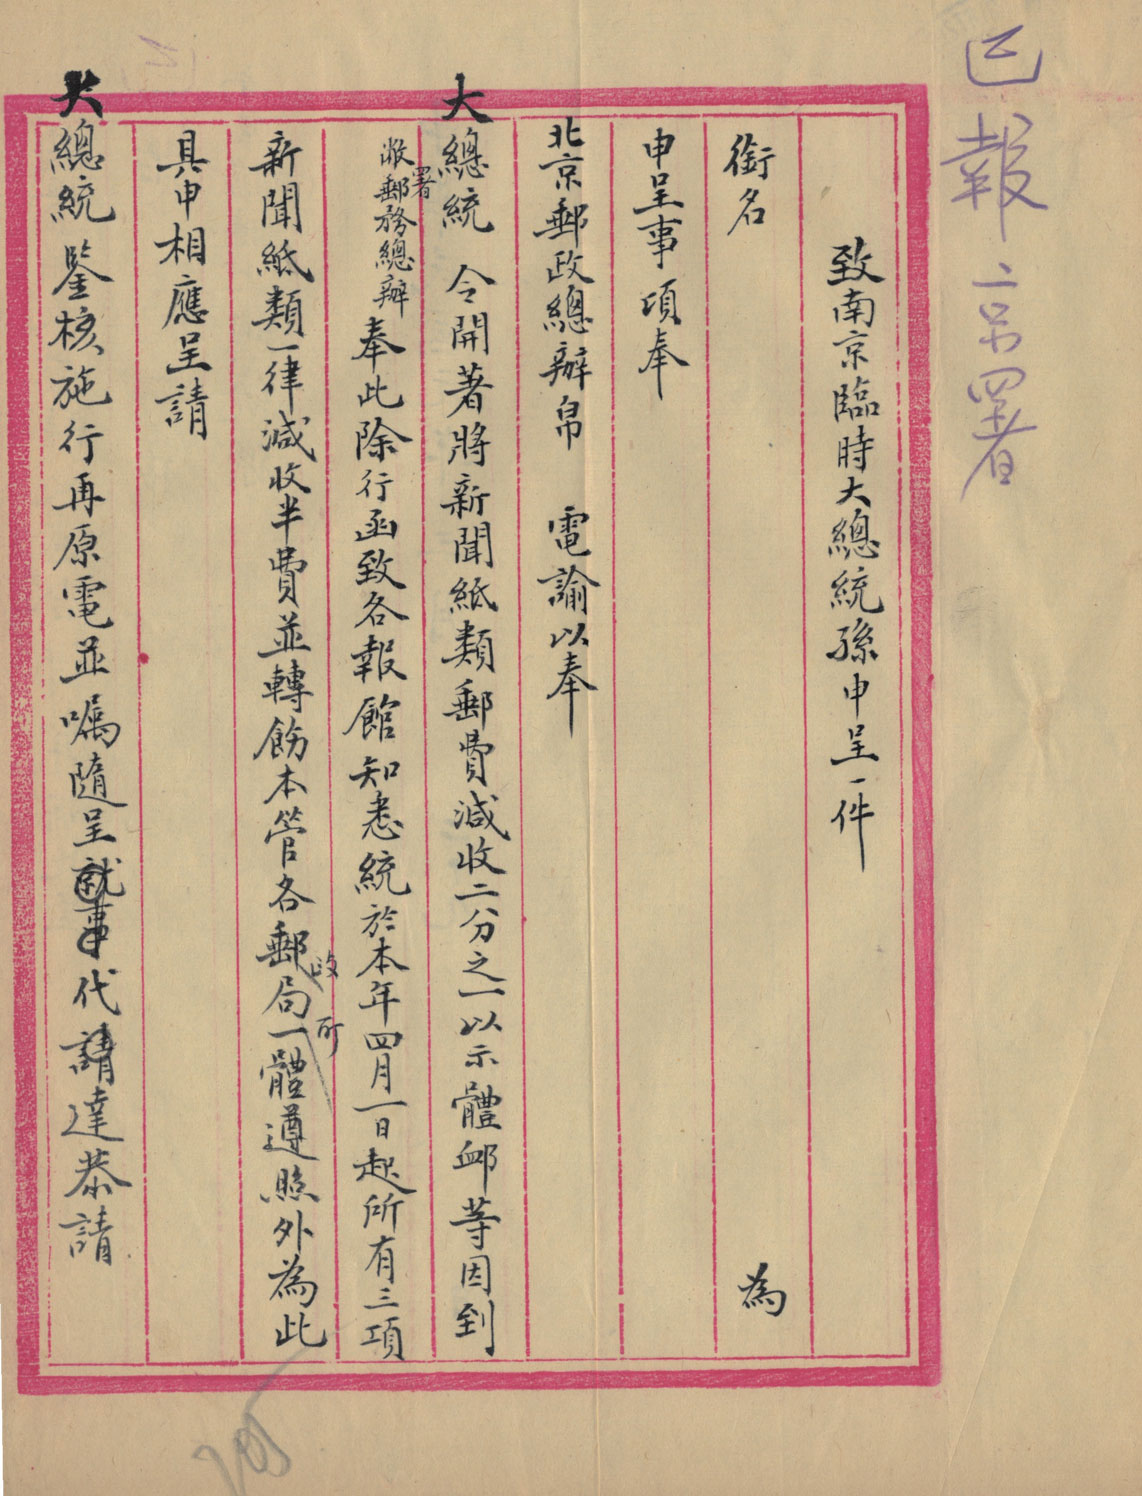 已報京署
致南京臨時大總統孫申呈一件
銜名 為
申呈事項奉
北京郵政總辦帛 電諭以奉
大總統 令開著將新聞紙類郵費減收二分之一以示體卹等因到
署
敝郵務總辦奉此除行函致各報館知悉統於本年四月一日起所有三項
新聞紙類一律減收半費並轉飭本管各郵政局所一體遵照外為此
具申相應呈請
大總統 鑒核施行再原電並囑隨呈就事代請達恭請